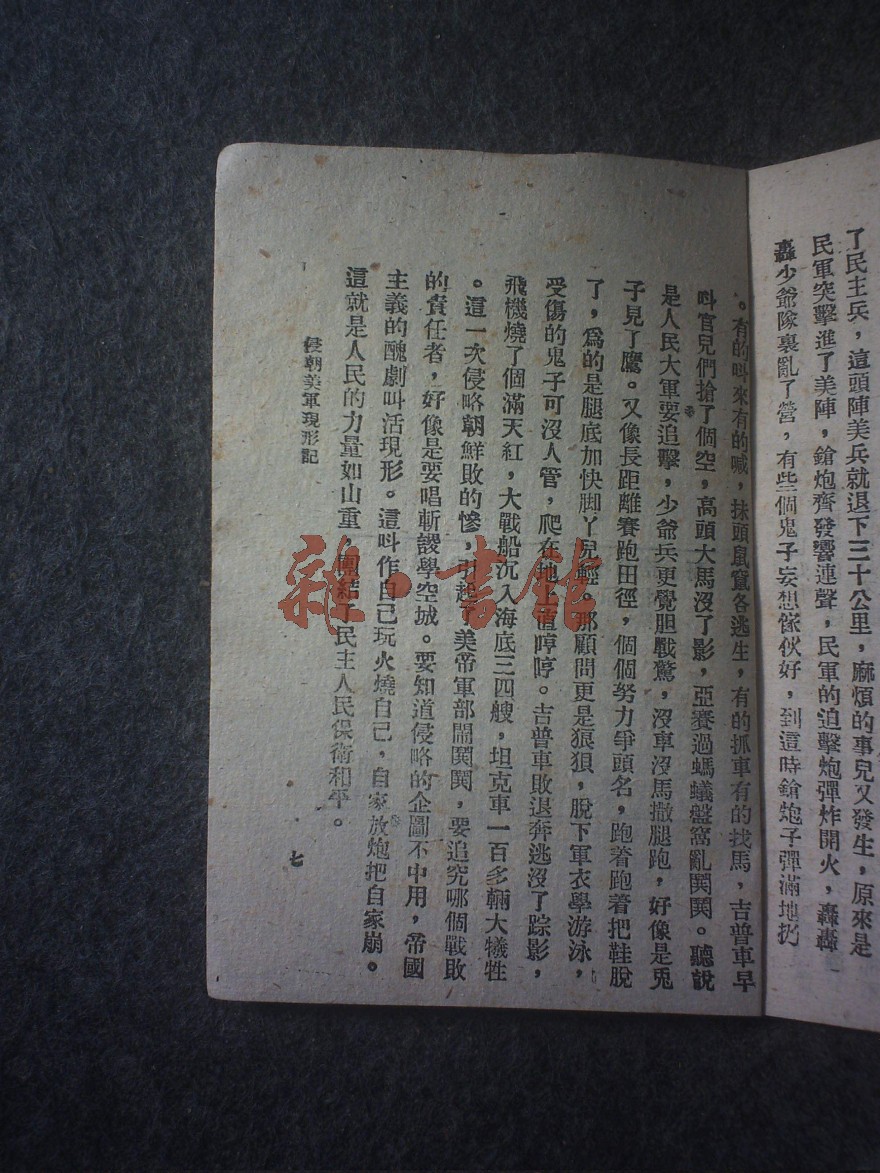 了民主兵，這頭陣美兵就退下三十公里，麻煩的事兒又發生，原來是
民軍突擊進了美陣，鎗炮齊發響連聲，民軍的迫擊炮彈炸開火，轟轟
轟少爺隊裏亂了營，有些個鬼子妄想傢伙好，到這時鎗炮子彈滿地扔
。有的呌來有的喊，抹頭鼠竄各逃生，有的抓車有的找馬，吉普車早
呌官兒們搶了個空，高頭大馬沒了影，亞賽過螞蟻盤窩亂鬨鬨。聽說
是人民大軍要追擊，少爺兵更覺胆戰驚，沒車沒馬撤腿跑，好像是兎
子見了鷹。又像長距離賽跑田徑，個個努力爭頭名，跑着跑着把鞋脫
了，爲的是腿底加快脚丫兒輕。那顧問更是狼狽，脫下軍衣學游泳，
受傷的鬼子可沒人管，爬在地上值哼哼。吉普車敗退奔逃沒了踪影，
飛機燒了個滿天紅，大戰船沉入海底三四艘，坦克車一百多輛大犧牲
。這一次侵略朝鮮敗的慘，引起了美帝軍部鬧鬨鬨，要追究哪個戰敗
的責任者，好像是要唱斬謖學空城。要知道侵略的企圖不中用，帝國
主義的醜劇呌活現形。這呌作自己玩火燒自己，自家放炮把自家崩。
這就是人民的力量如山重，團結了民主人民保衛和平。
侵朝美軍現形記
七
雜·書館